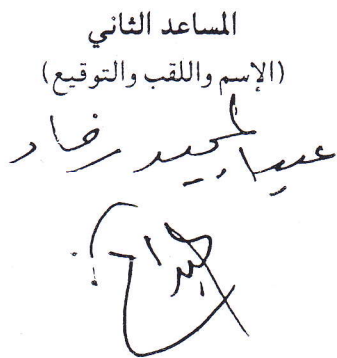 المساعد الثاني
(الإسم واللقب والتوقيع)
عبد المجيد رفاد